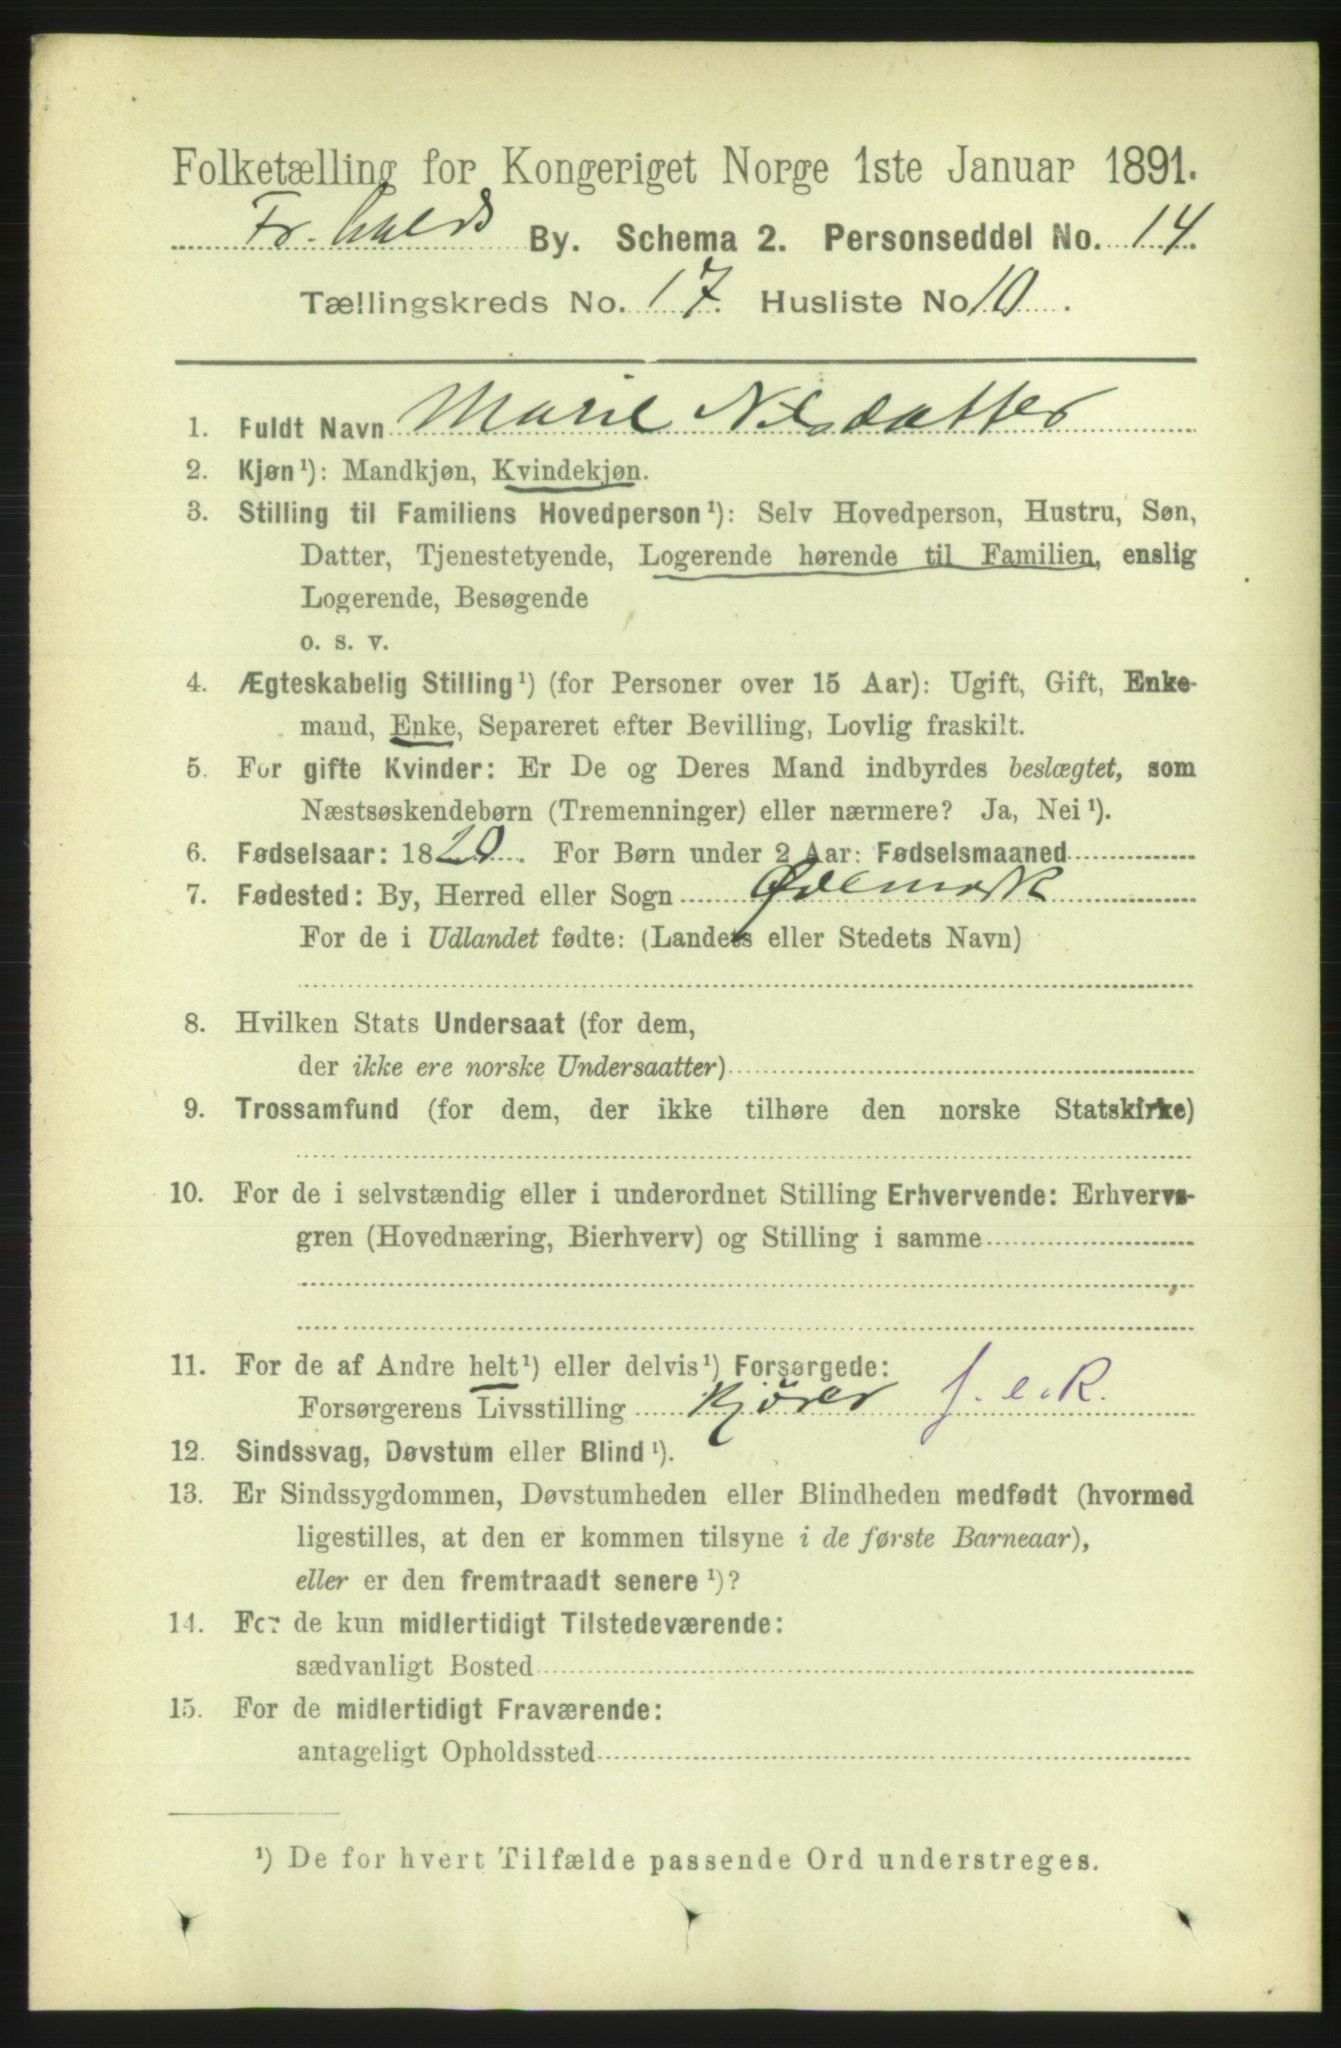 Folketælling for Kongeriget Norge 1ste Januar 1891.
Fr. halds By. Schema 2. Personseddel No. 14.
Tællingskreds No. 17. Husliste No 10.
1. Fuldt Navn Marie Nilsdatter
2. Kjøn¹): Mandkjøn, Kvindekjøn.
3. Stilling til Familiens Hovedperson¹): Selv Hovedperson, Hustru, Søn,
Datter, Tjenestetyende, Logerende hørende til Familien, enslig
Logerende, Besøgende
o. s. v.
4. Ægteskabelig Stilling¹) (for Personer over 15 Aar): Ugift, Gift, Enke-
mand, Enke, Separeret efter Bevilling, Lovlig fraskilt.
5. For gifte Kvinder: Er De og Deres Mand indbyrdes beslægtet, som
Næstsøskendebørn (Tremenninger) eller nærmere? Ja, Nei¹).
6. Fødselsaar: 1820. For Børn under 2 Aar: Fødselsmaaned
7. Fødested: By, Herred eller Sogn Ødemark
For de i Udlandet fødte: (Landets eller Stedets Navn)
8. Hvilken Stats Undersaat (for dem,
der ikke ere norske Undersaatter)
9. Trossamfund (for dem, der ikke tilhøre den norske Statskirke)
10. For de i selvstændig eller i underordnet Stilling Erhvervende: Erhvervs-
gren (Hovednæring, Bierhverv) og Stilling i samme
11. For de af Andre helt¹) eller delvis¹) Forsørgede:
Forsørgerens Livsstilling Kjører f. e. R.
12. Sindssvag, Døvstum eller Blind¹).
13. Er Sindssygdommen, Døvstumheden eller Blindheden medfødt (hvormed
ligestilles, at den er kommen tilsyne i de første Barneaar),
eller er den fremtraadt senere¹)?
14. For de kun midlertidigt Tilstedeværende:
sædvanligt Bosted
15. For de midlertidigt Fraværende:
antageligt Opholdssted
¹) De for hvert Tilfælde passende Ord understreges.